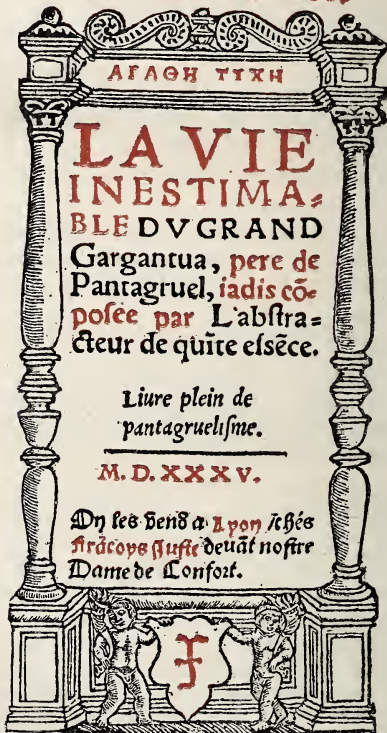 ΑΓΑΘΗ ΤΥΧΗ
LA VIE
INESTIMA⸗
BLE DV GRAND
Gargantua, pere de
Pantagruel, iadis cõ⸗
poſée par L'abſtra⸗
cteur de quĩte eſsẽce.
Liure plein de
pantagrueliſme.
M. D. XXXV.
On les vend a Lyon chés
Frãcoys Juſte devãt noſtre
Dame de Confort.